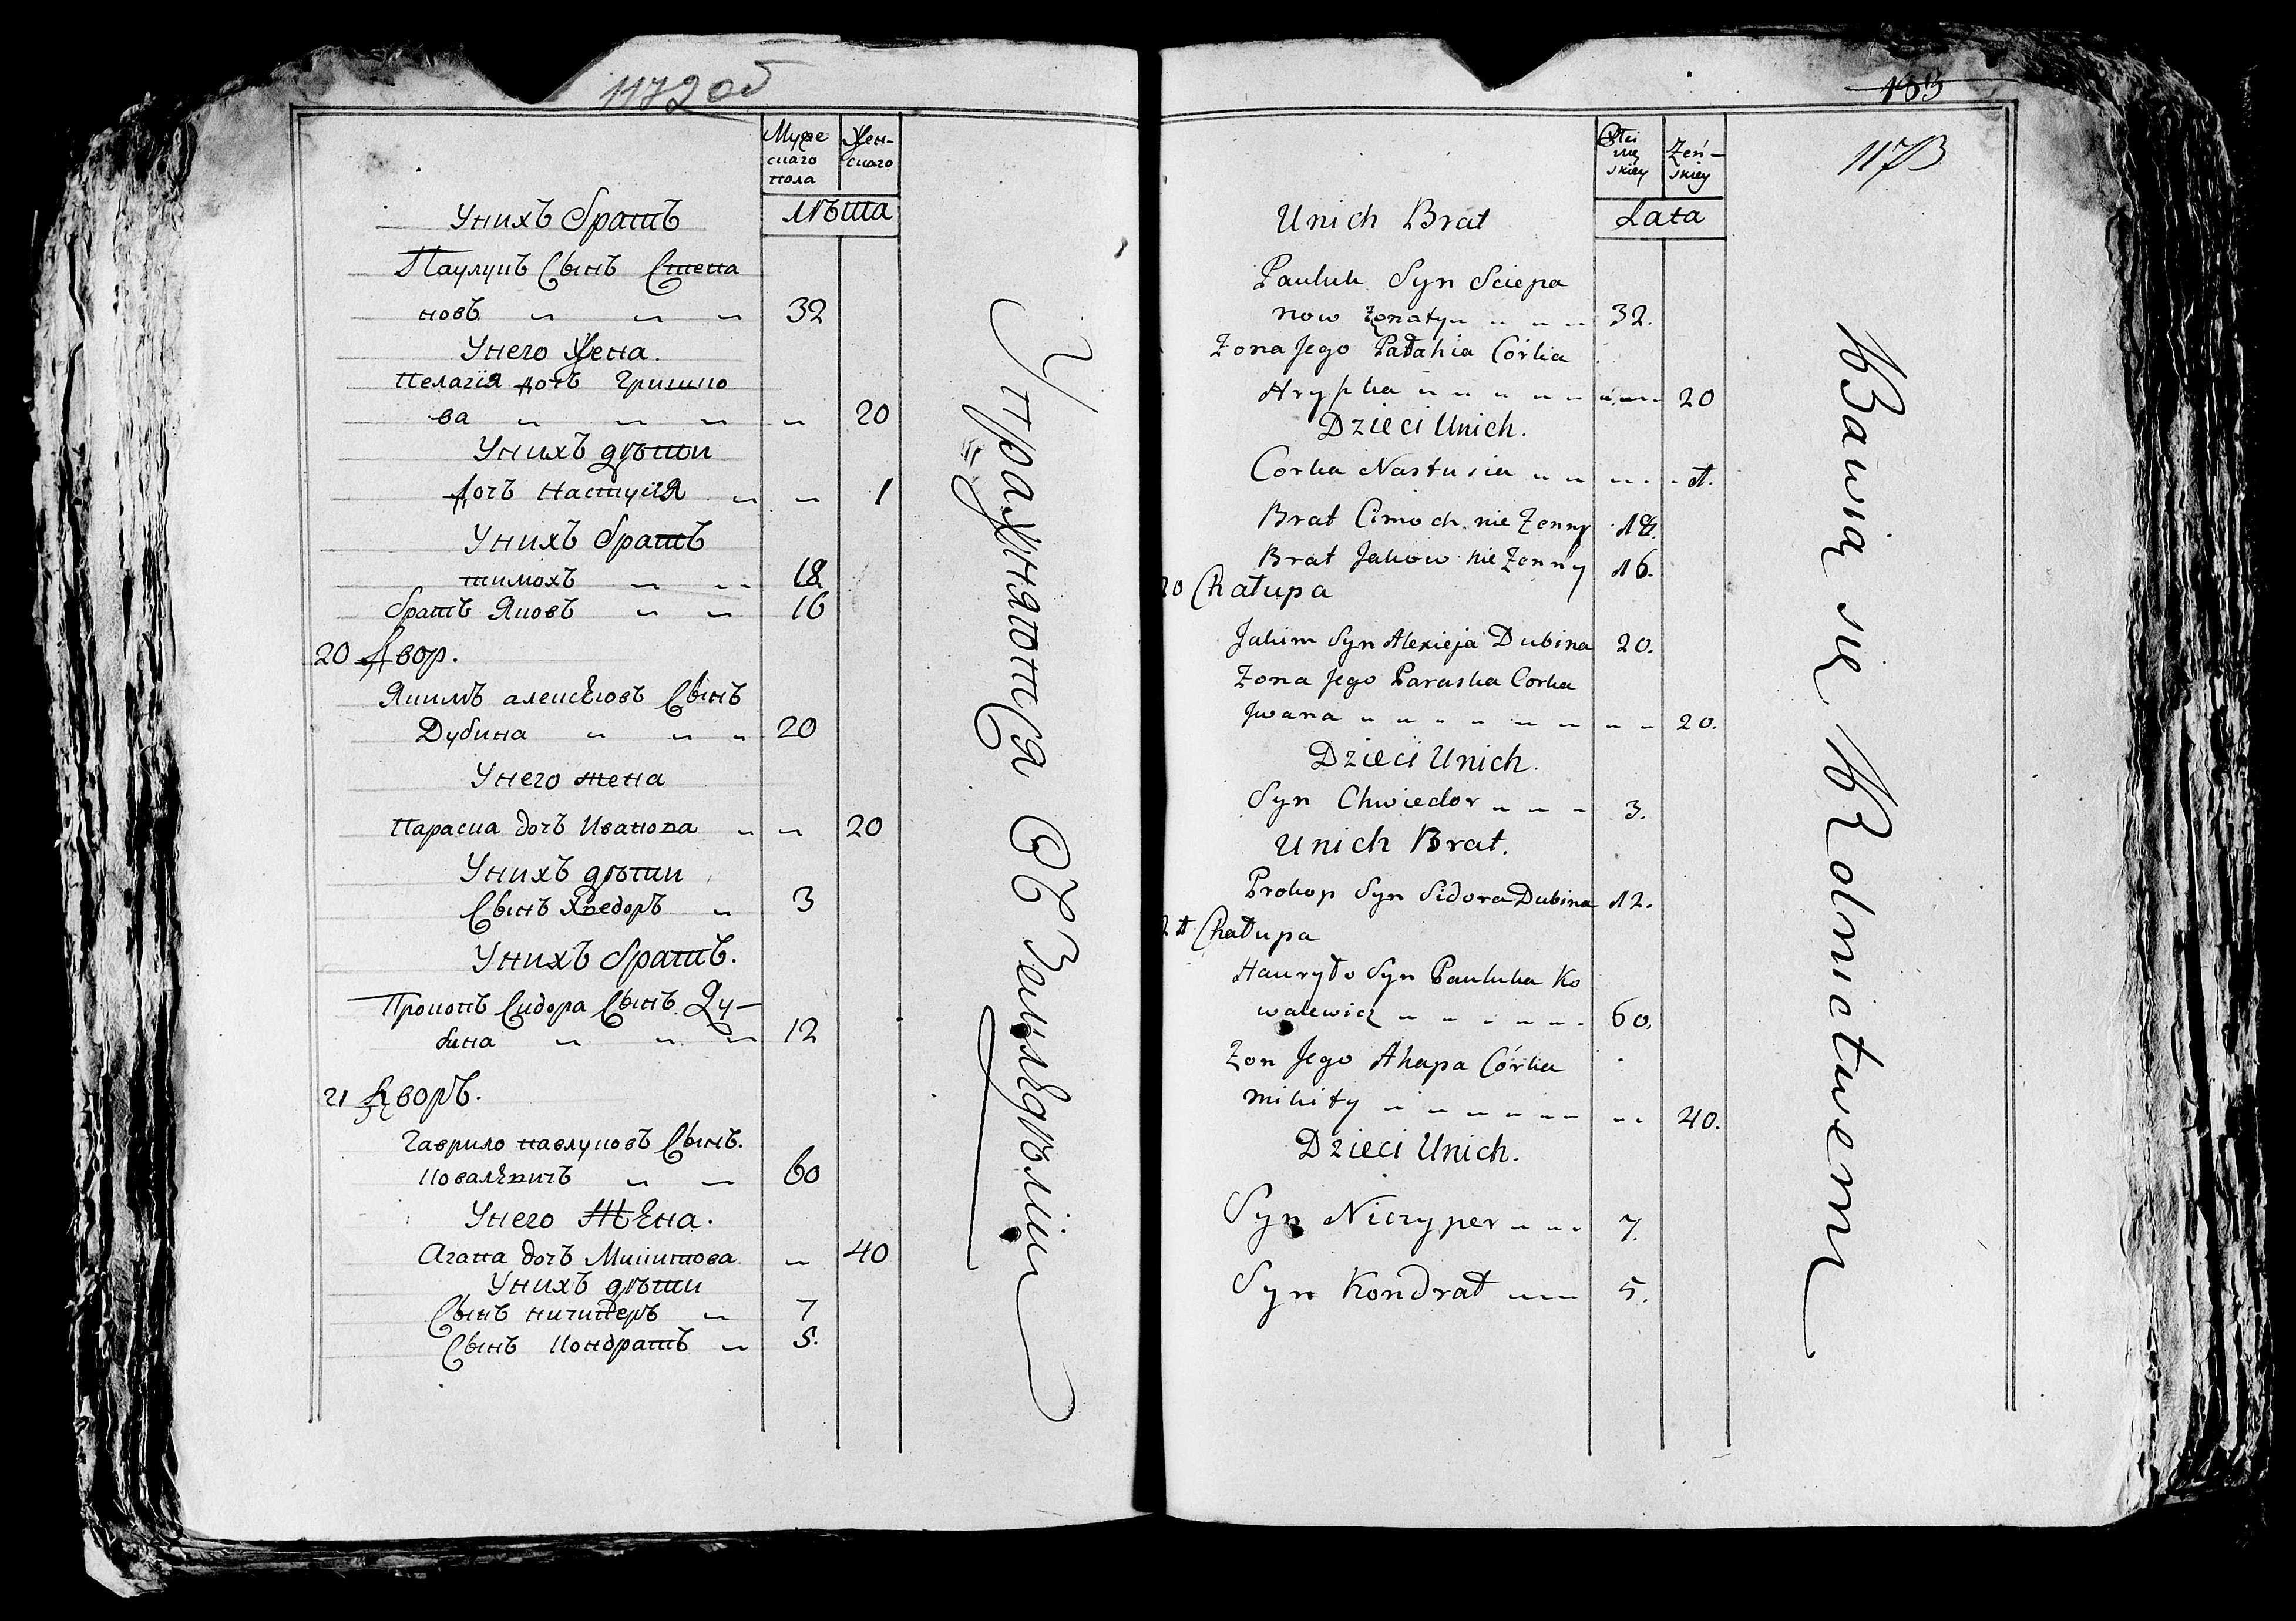 1172 об
Мужескаго пола
Женскаго
Лѣта
Унихъ братъ
Паулукъ Сынъ Степа
новъ 32
Унего Жена.
Пелагія дочъ Гришко
ва 20
Унихъ дѣти
Дочъ Настусія 1
Унихъ братъ
тимохъ 18
братъ Яковъ 16
20 Двор.
Якимъ алексѣювъ Сынъ
Дубина 20
Унего жена
Параска дочъ Иванова 20
Унихъ дѣти
Сынъ Хведоръ 3
Унихъ братъ.
Прокопъ Сидора Сынъ Ду-
бина 12
21 Дворъ.
Гаврило павлуковъ Сынъ.
Ковалевичъ 60
Унего Жена.
Агапа дочъ Микитова 40
Унихъ дѣти
Сынъ ничиперъ 7
Сынъ Кондратъ 5.
Упражняются въ Земледѣліи
183
1173
Płci
mę
skiey
Żeń-
skiey
Lata
Unich Brat
Pauluk Syn Sciepa
now Żonaty 32.
Żona Jego Pałahia Córka
Hryszka 20
Dzieci Unich.
Corka Nastusia 1.
Brat Cimoch nie Żenny 18.
Brat Jakow nie Żenny 16.
20 Chałupa
Jakim Syn Alexieja Dubina 20.
Żona Jego Paraska Corka
Jwana 20.
Dzieci Unich.
Syn Chwiedor 3.
Unich Brat.
Prokop Syn Sidora Dubina 12.
21 Chałupa
Hauryło Syn Pauluka Ko
walewicz 60.
Żon Jego Ahapa Córka
mikity 40.
Dzieci Unich.
Syn Niczyper 7.
Syn Kondrat 5.
Bawią się Rolnictwem